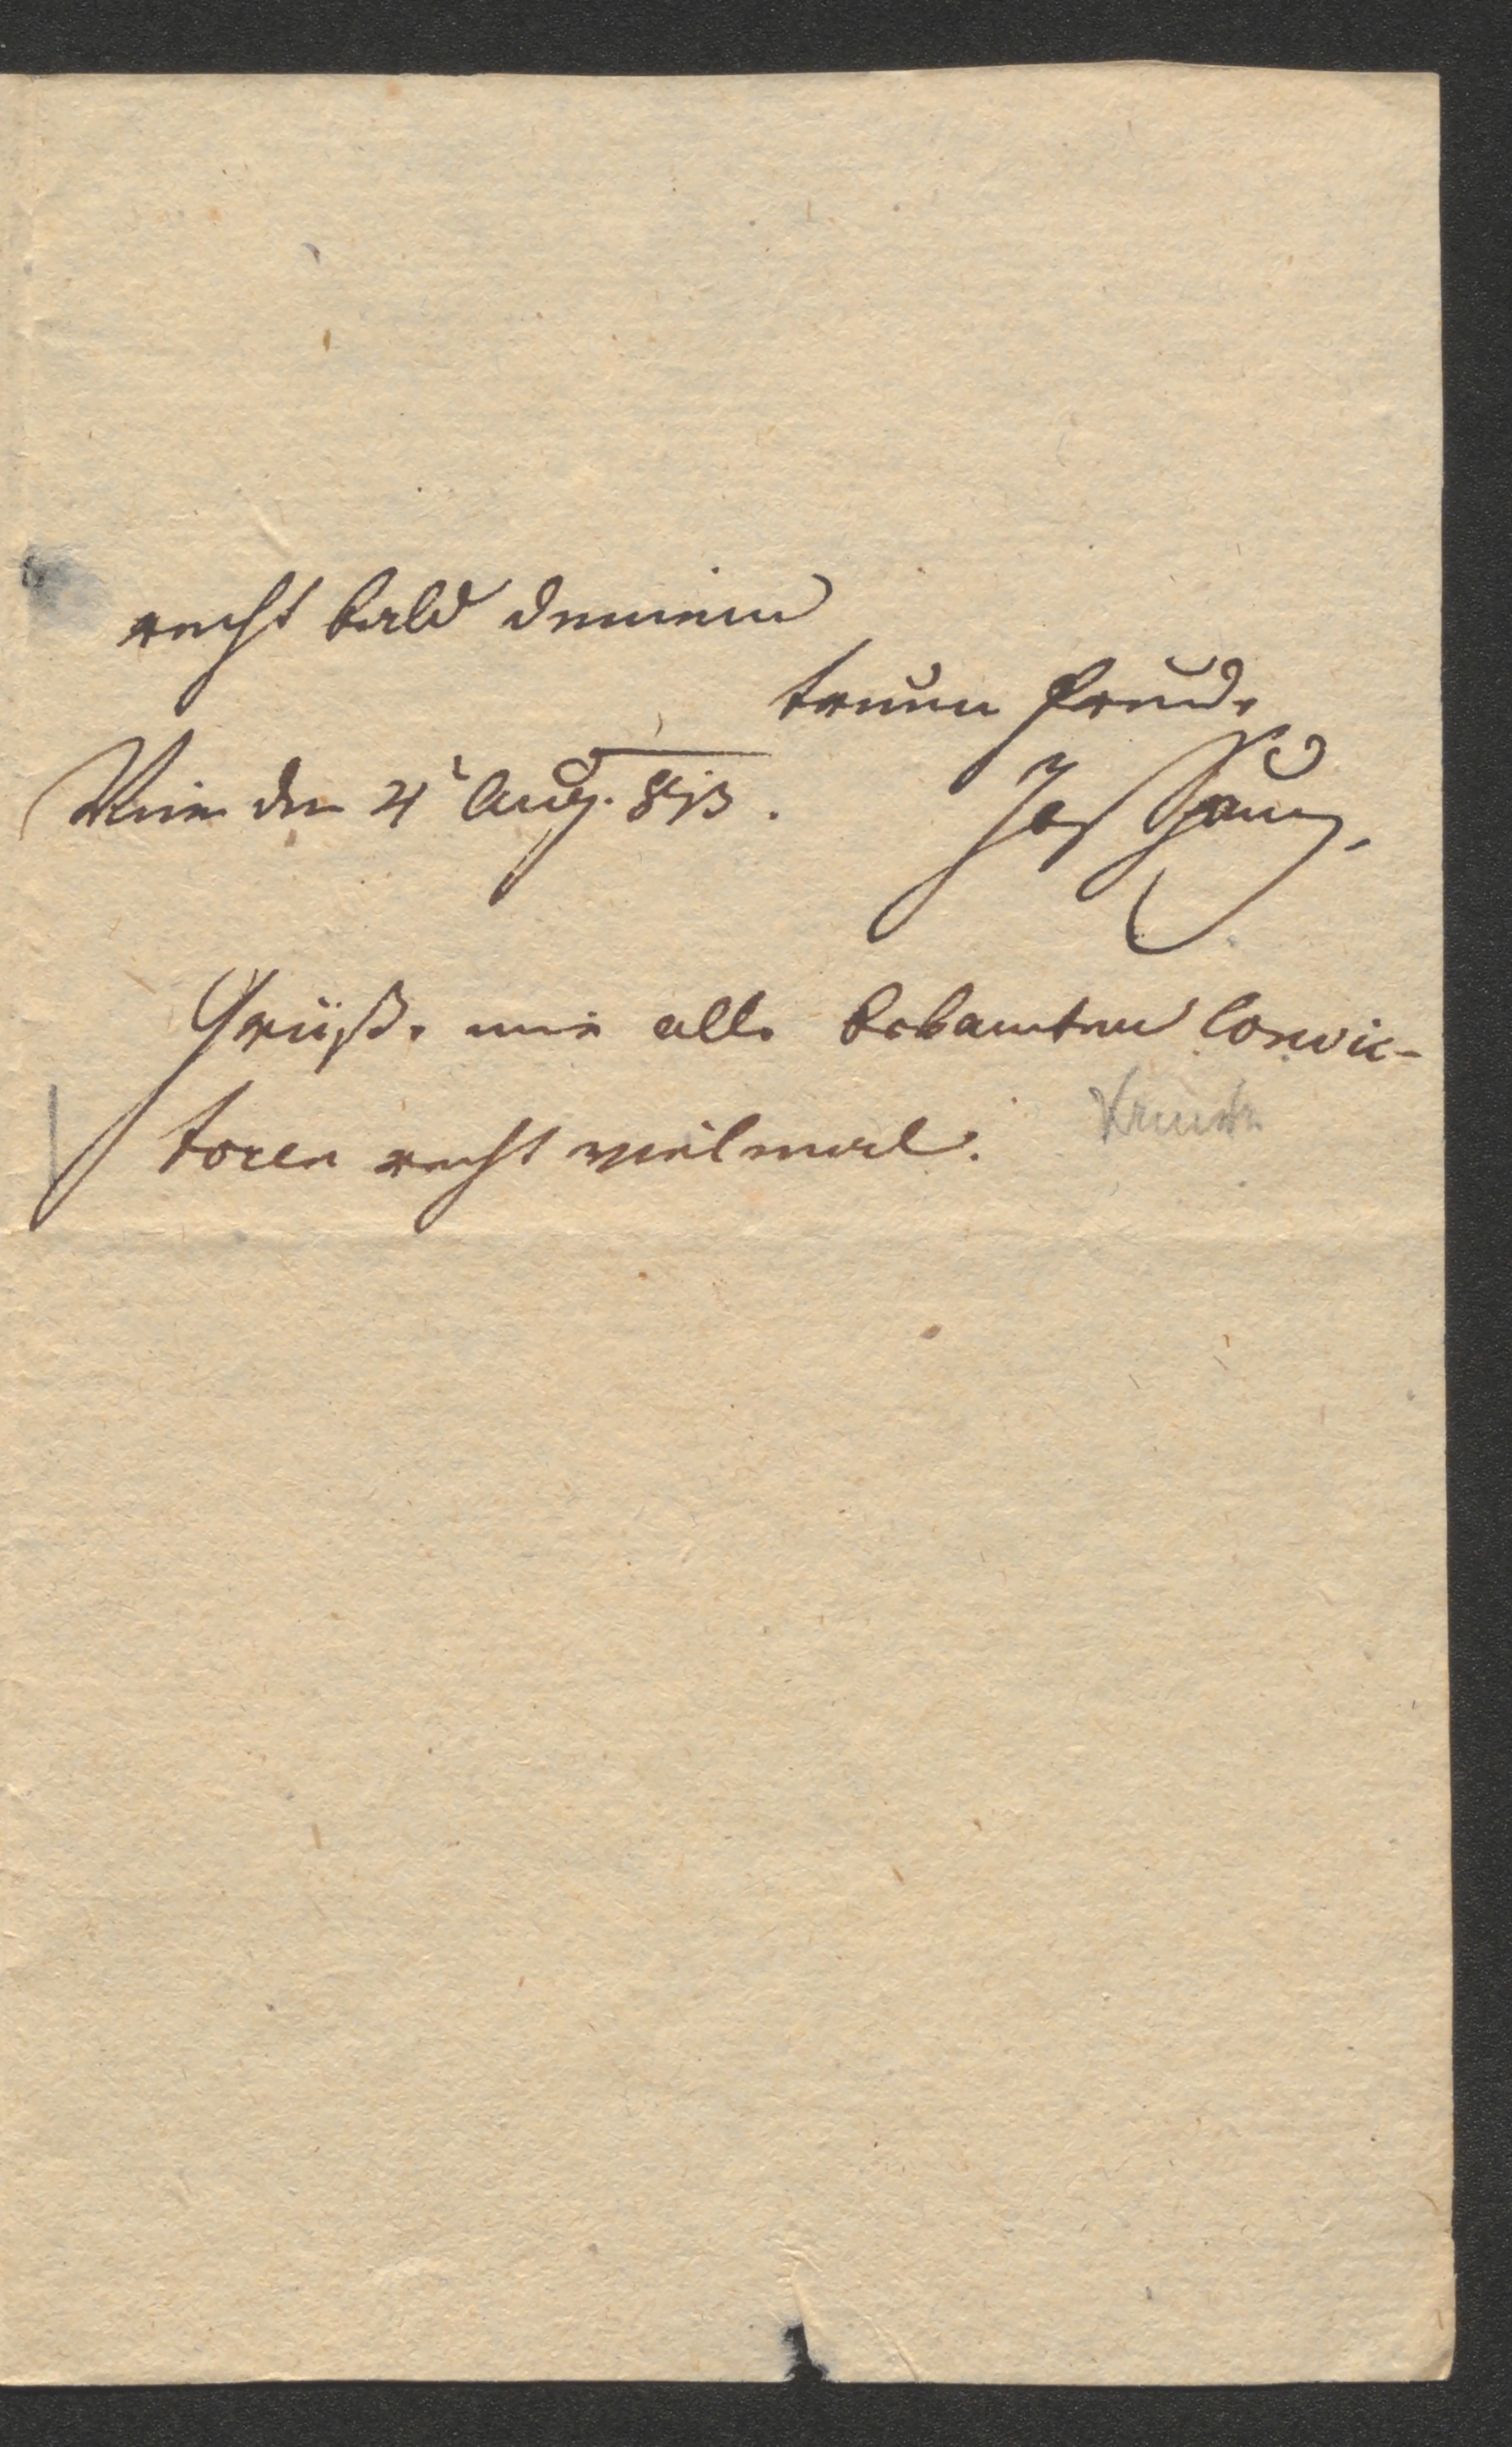 recht bald deinem
treuen Freude
Wien den 4t Aug. 813.
Jos
Grüße mir alle bekannten Convic-
toren recht vielmal.